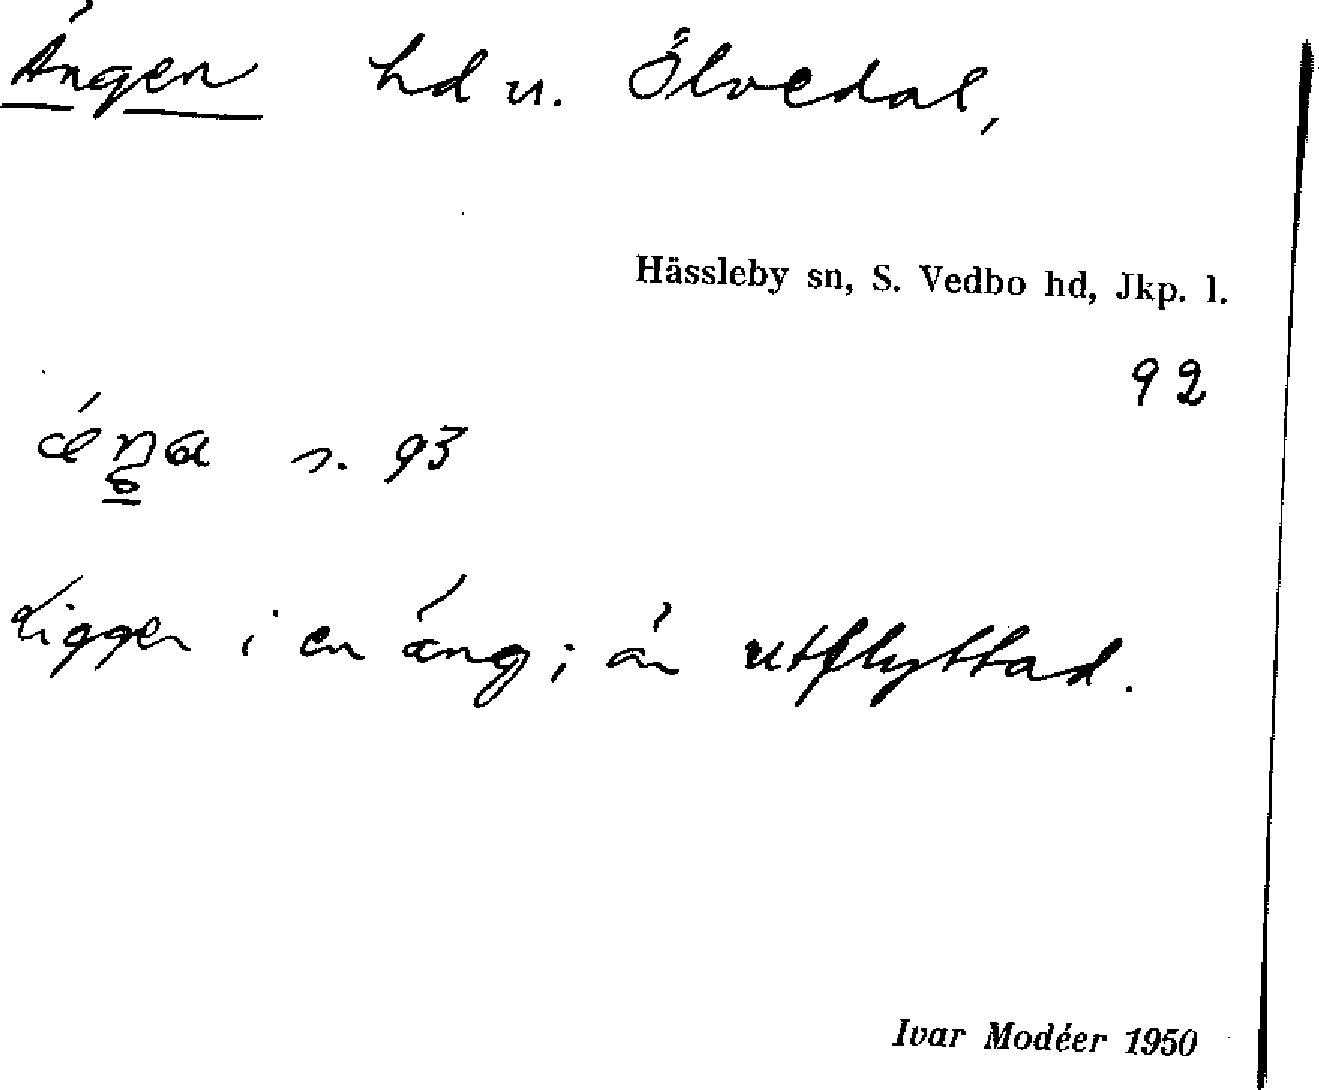 Ängen hd u. Ölvedal,
Hässleby sn, S. Vedbo hd, Jkp. l.
92
s. 93
Ligger i en äng; är utflyttad.
Ivar Modéer 1950